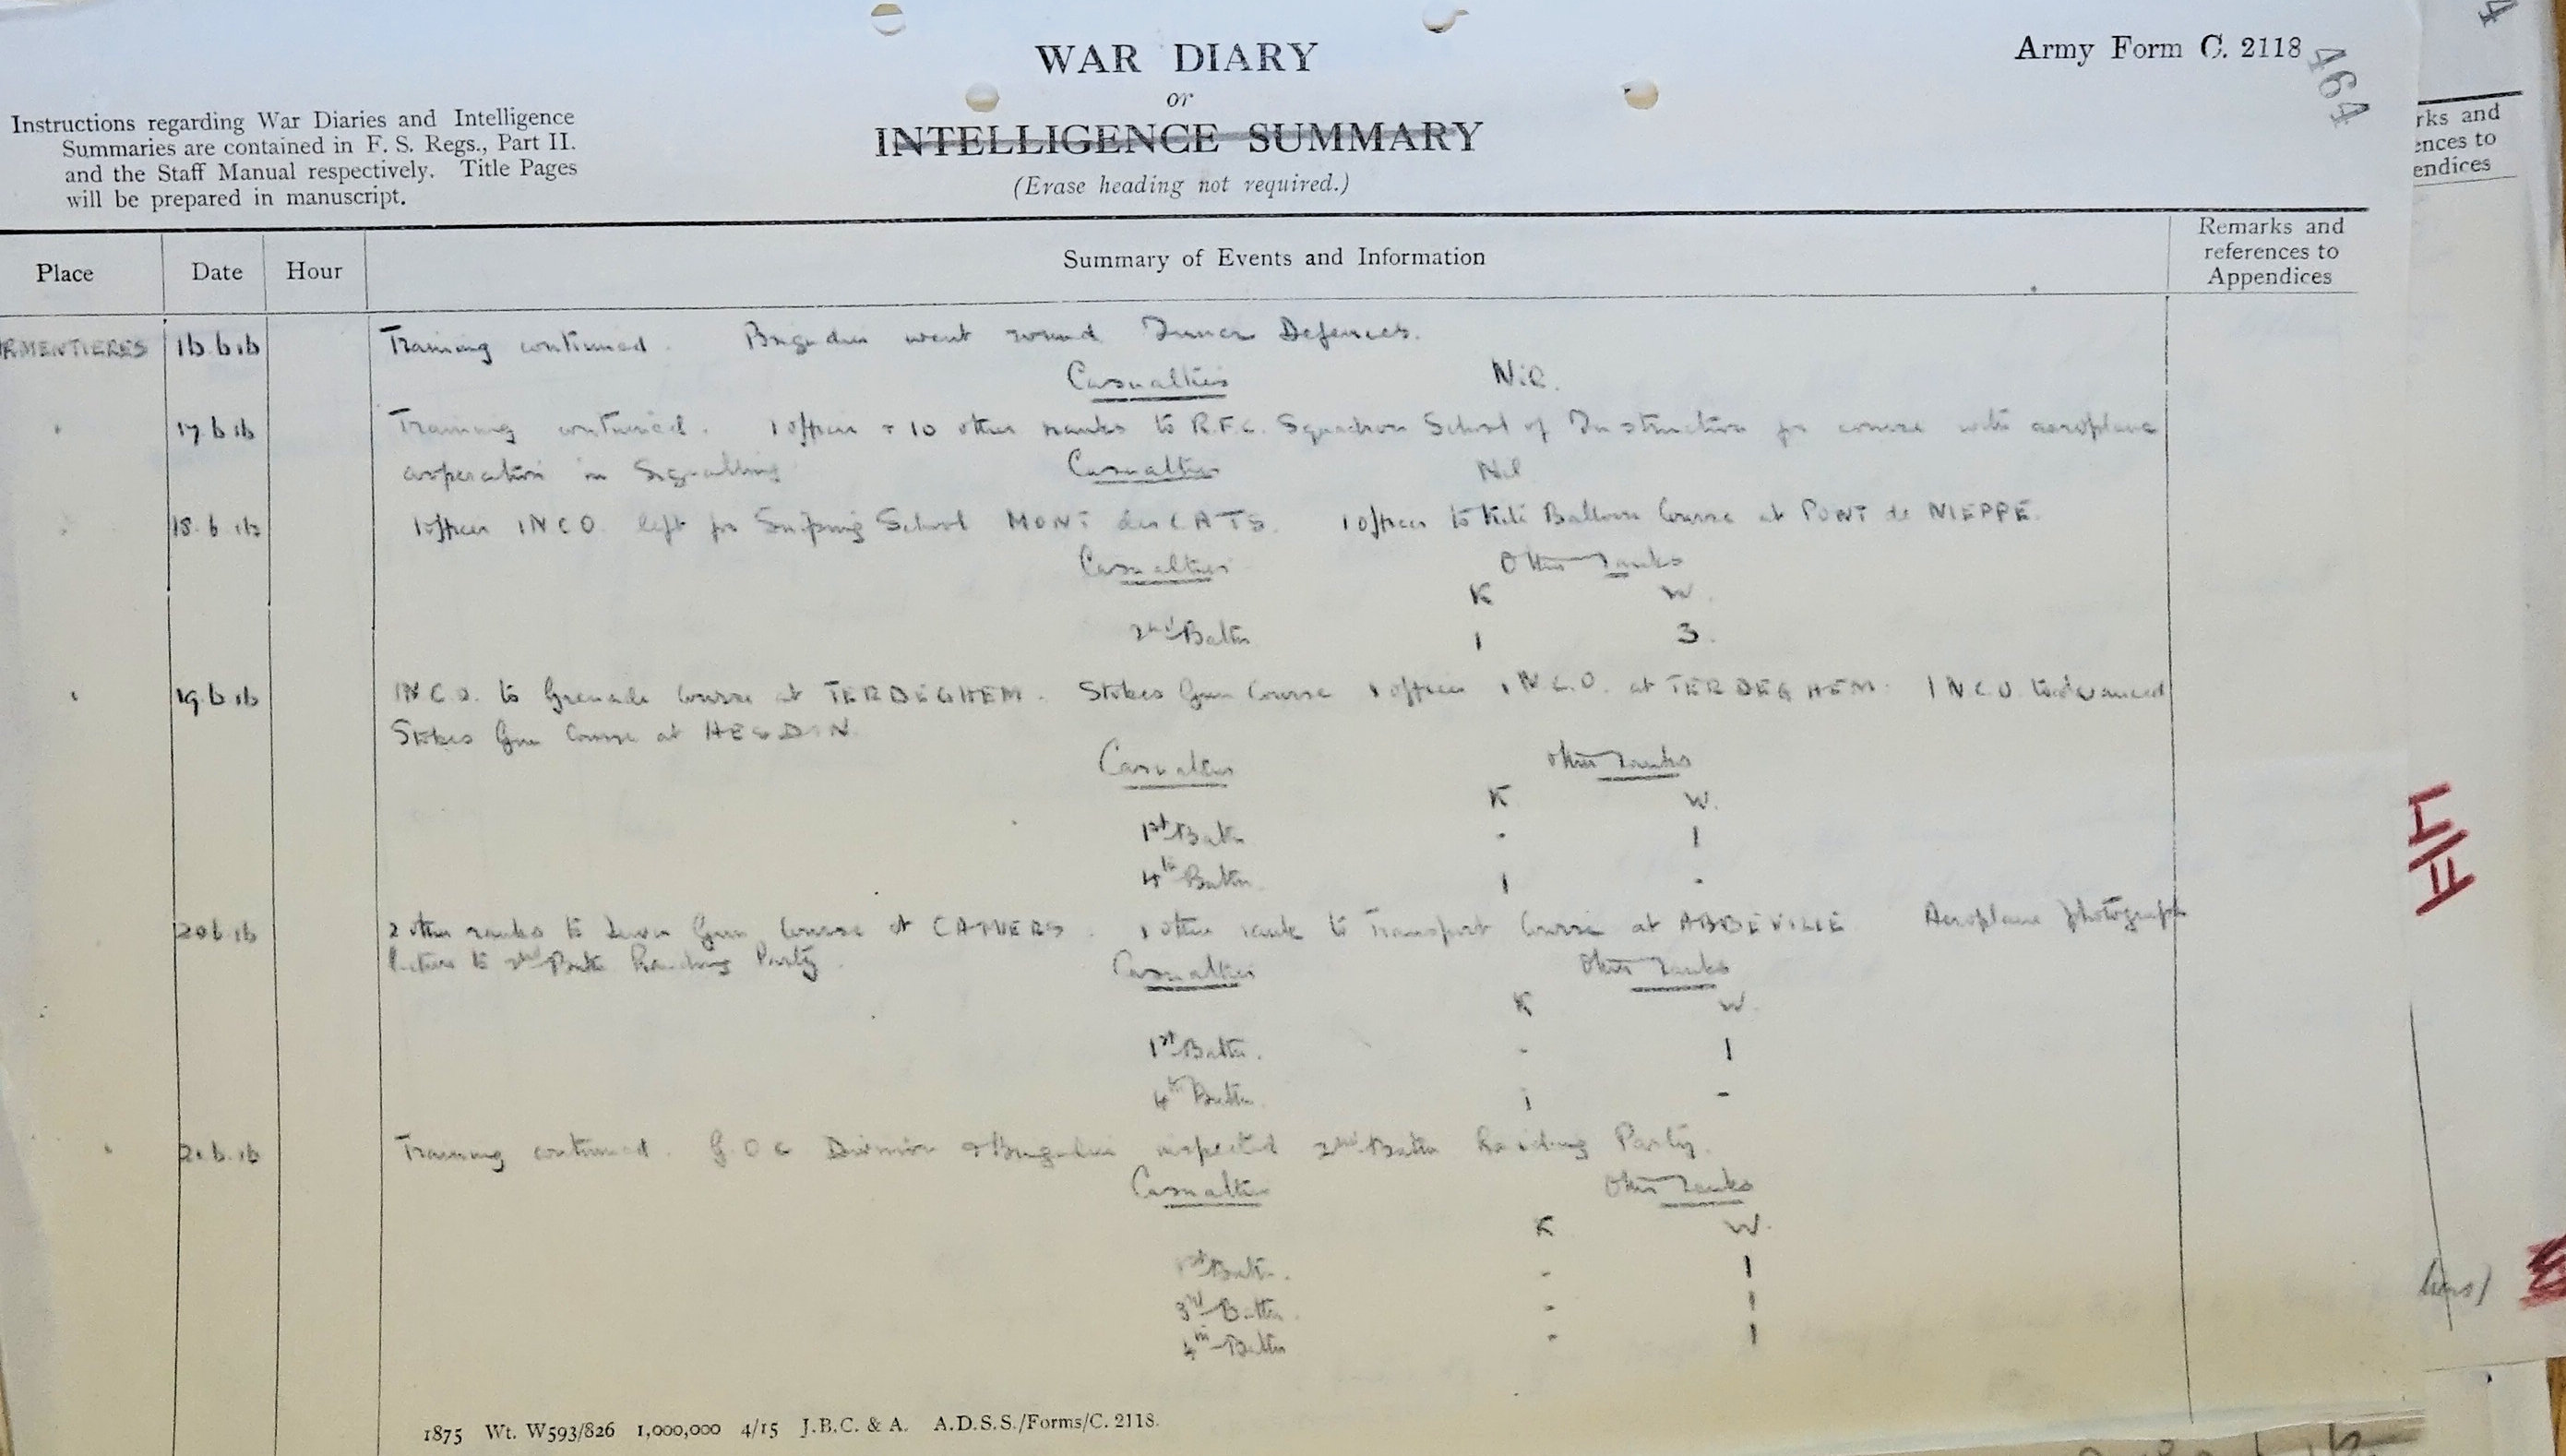 WAR DIARY
or
INTELLIGENCE SUMMARY
(Erase heading not required.)
Army Form C. 2118
464
Instructions regarding War Diaries and Intelligence
Summaries are contained in F. S. Regs., Part II.
and the Staff Manual respectively. Title Pages
will be prepared in manuscript.
Place Date Hour Summary of Events and Information Remarks and references to Appendices
RMENTIERES 16.6.16 Training continued. Brigadier went round Inner Defences.
Casualties Nil.
17.6.16 Training continued. 1 officer + 10 other ranks to R.F.C. Squadron School of Instruction for course with aeroplane
cooperation in Signalling
Casualties Nil
18.6.16 1 officer 1 N C O left for Sniping School MONT des CATS. 1 officer to Kite Balloon Course at PONT de NIEPPE.
Casualties Other ranks
K W.
2nd Battn 1 3.
19.6.16 1 N C O. to Grenade Course at TERDEGHEM. Stokes Gun Course 1 officer 1 N.C.O. at TERDEGHEM. 1 N C O to advanced
Stokes Gun Course at HESDIN.
Casualties Other ranks
K W.
1st Battn - 1
4th Battn 1 -
20.6.16 2 other ranks to Lewis Gun Course at CAMIERS. 1 other rank to Transport Course at ABBEVILLE Aeroplane photograph
lecture to 2nd Battn Raiding Party.
Casualties Other ranks
K W.
1st Battn. - 1
4th Battn 1 -
21.6.16 Training continued. G.O.C Division & Brigadier inspected 2nd Battn Raiding Party.
Casualties Other ranks
K W.
1st Battn. - 1
3rd Battn. - 1
4th Battn - 1
1875 Wt. W593/826 1,000,000 4/15 J.B.C. & A. A.D.S.S./Forms/C. 2118.
4
rks and
ences to
endices
I
II